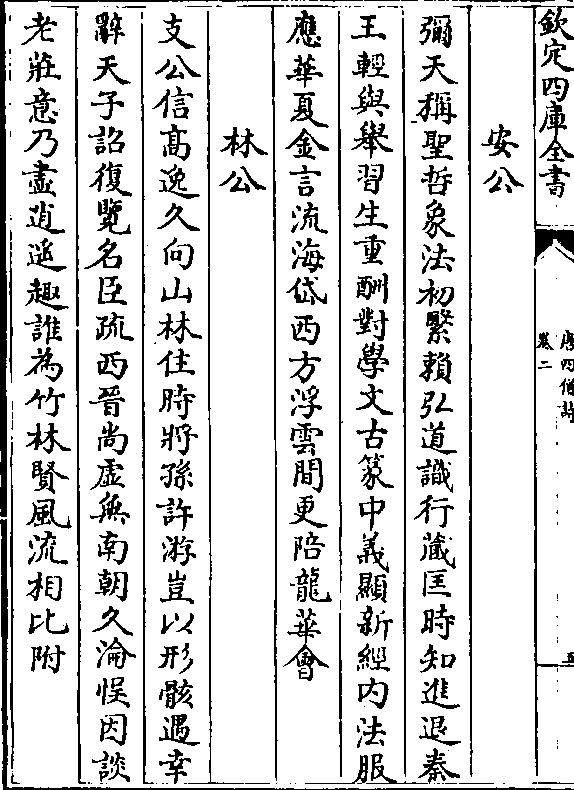 欽定四庫全書
唐四僧詩
卷二
五
安公
彌天稱聖哲象法初繫賴弘道識行藏匡時知進退秦
王輕與轝習生重酬對學文古篆中義顯新經内法服
應華夏金言流海岱西方浮雲間更陪龍華會
林公
支公信髙逸久向山林住時將孫許游豈以形骸遇幸
辭天子詔復覽名臣疏西晉尚虛無南朝久淪悞因談
老莊意乃盡逍遥趣誰為竹林賢風流相比附